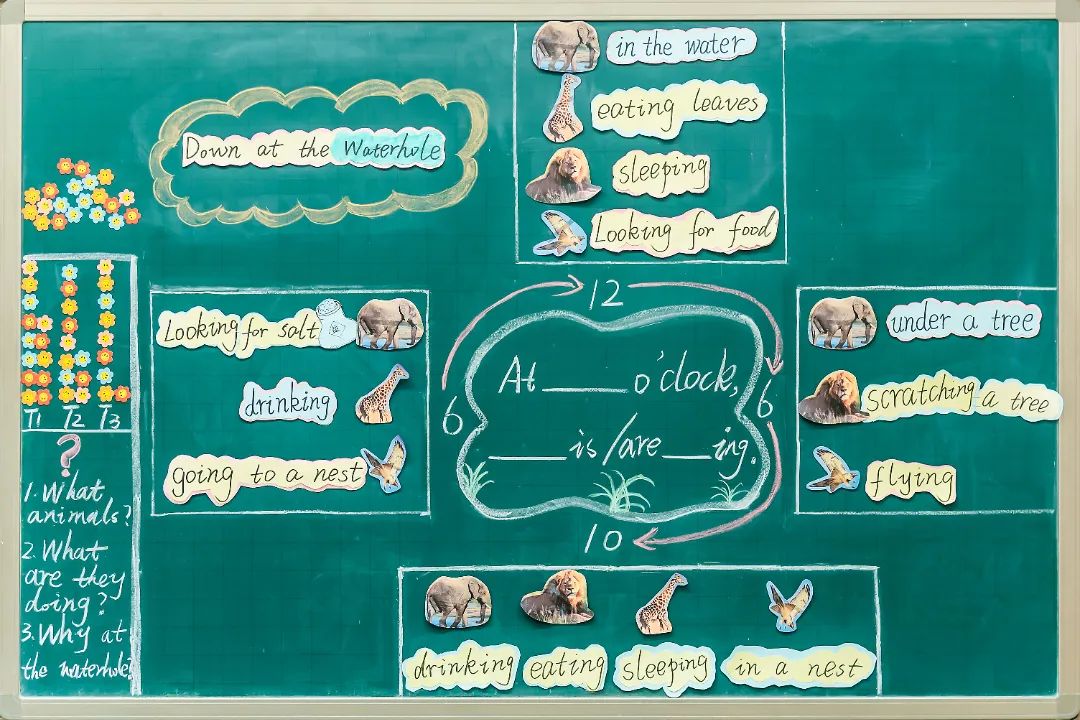 Down at the Waterhole
in the water
eating leaves
sleeping
Looking for food
T1 T2 T3
?
1. What
animals?
2. What
are they
doing?
3. Why at
the waterhole?
Looking for salt
drinking
going to a nest
12
6
6
10
At ____ o'clock,
____ is/are ___ing.
under a tree
scratching a tree
flying
drinking eating sleeping in a nest